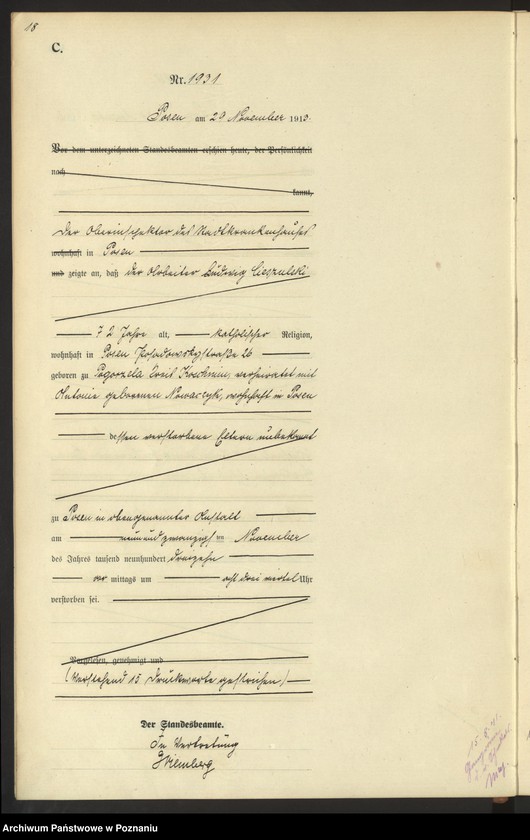 18
C.
Nr. 1931
Posen am 29 November 1913.
Vor dem unterzeichneten Standesbeamten erschien heute, der Persönlichkeit
nach
kannt,
Der Oberinspektor des Stadtkrankenhauses
wohnhaft in Posen
und zeigte an, daß der Arbeiter Ludwig Cieszulski
72 Jahre alt, katholischer Religion,
wohnhaft in Posen Posadowskystraße 26
geboren zu Pogorzela Kreis Koschmin, verheiratet mit
Antonie geborenen Nowaczyk, wohnhaft in Posen
dessen verstorbene Eltern unbekannt
zu Posen in obengenannter Anstalt
am neunundzwanzigsten November
des Jahres tausend neunhundert dreizehn
vor mittags um acht drei viertel Uhr
verstorben sei.
Vorgelesen, genehmigt und
(Vorstehend 15 Druckworte gestrichen)
Der Standesbeamte.
In Vertretung
Archiwum Państwowe w Poznaniu